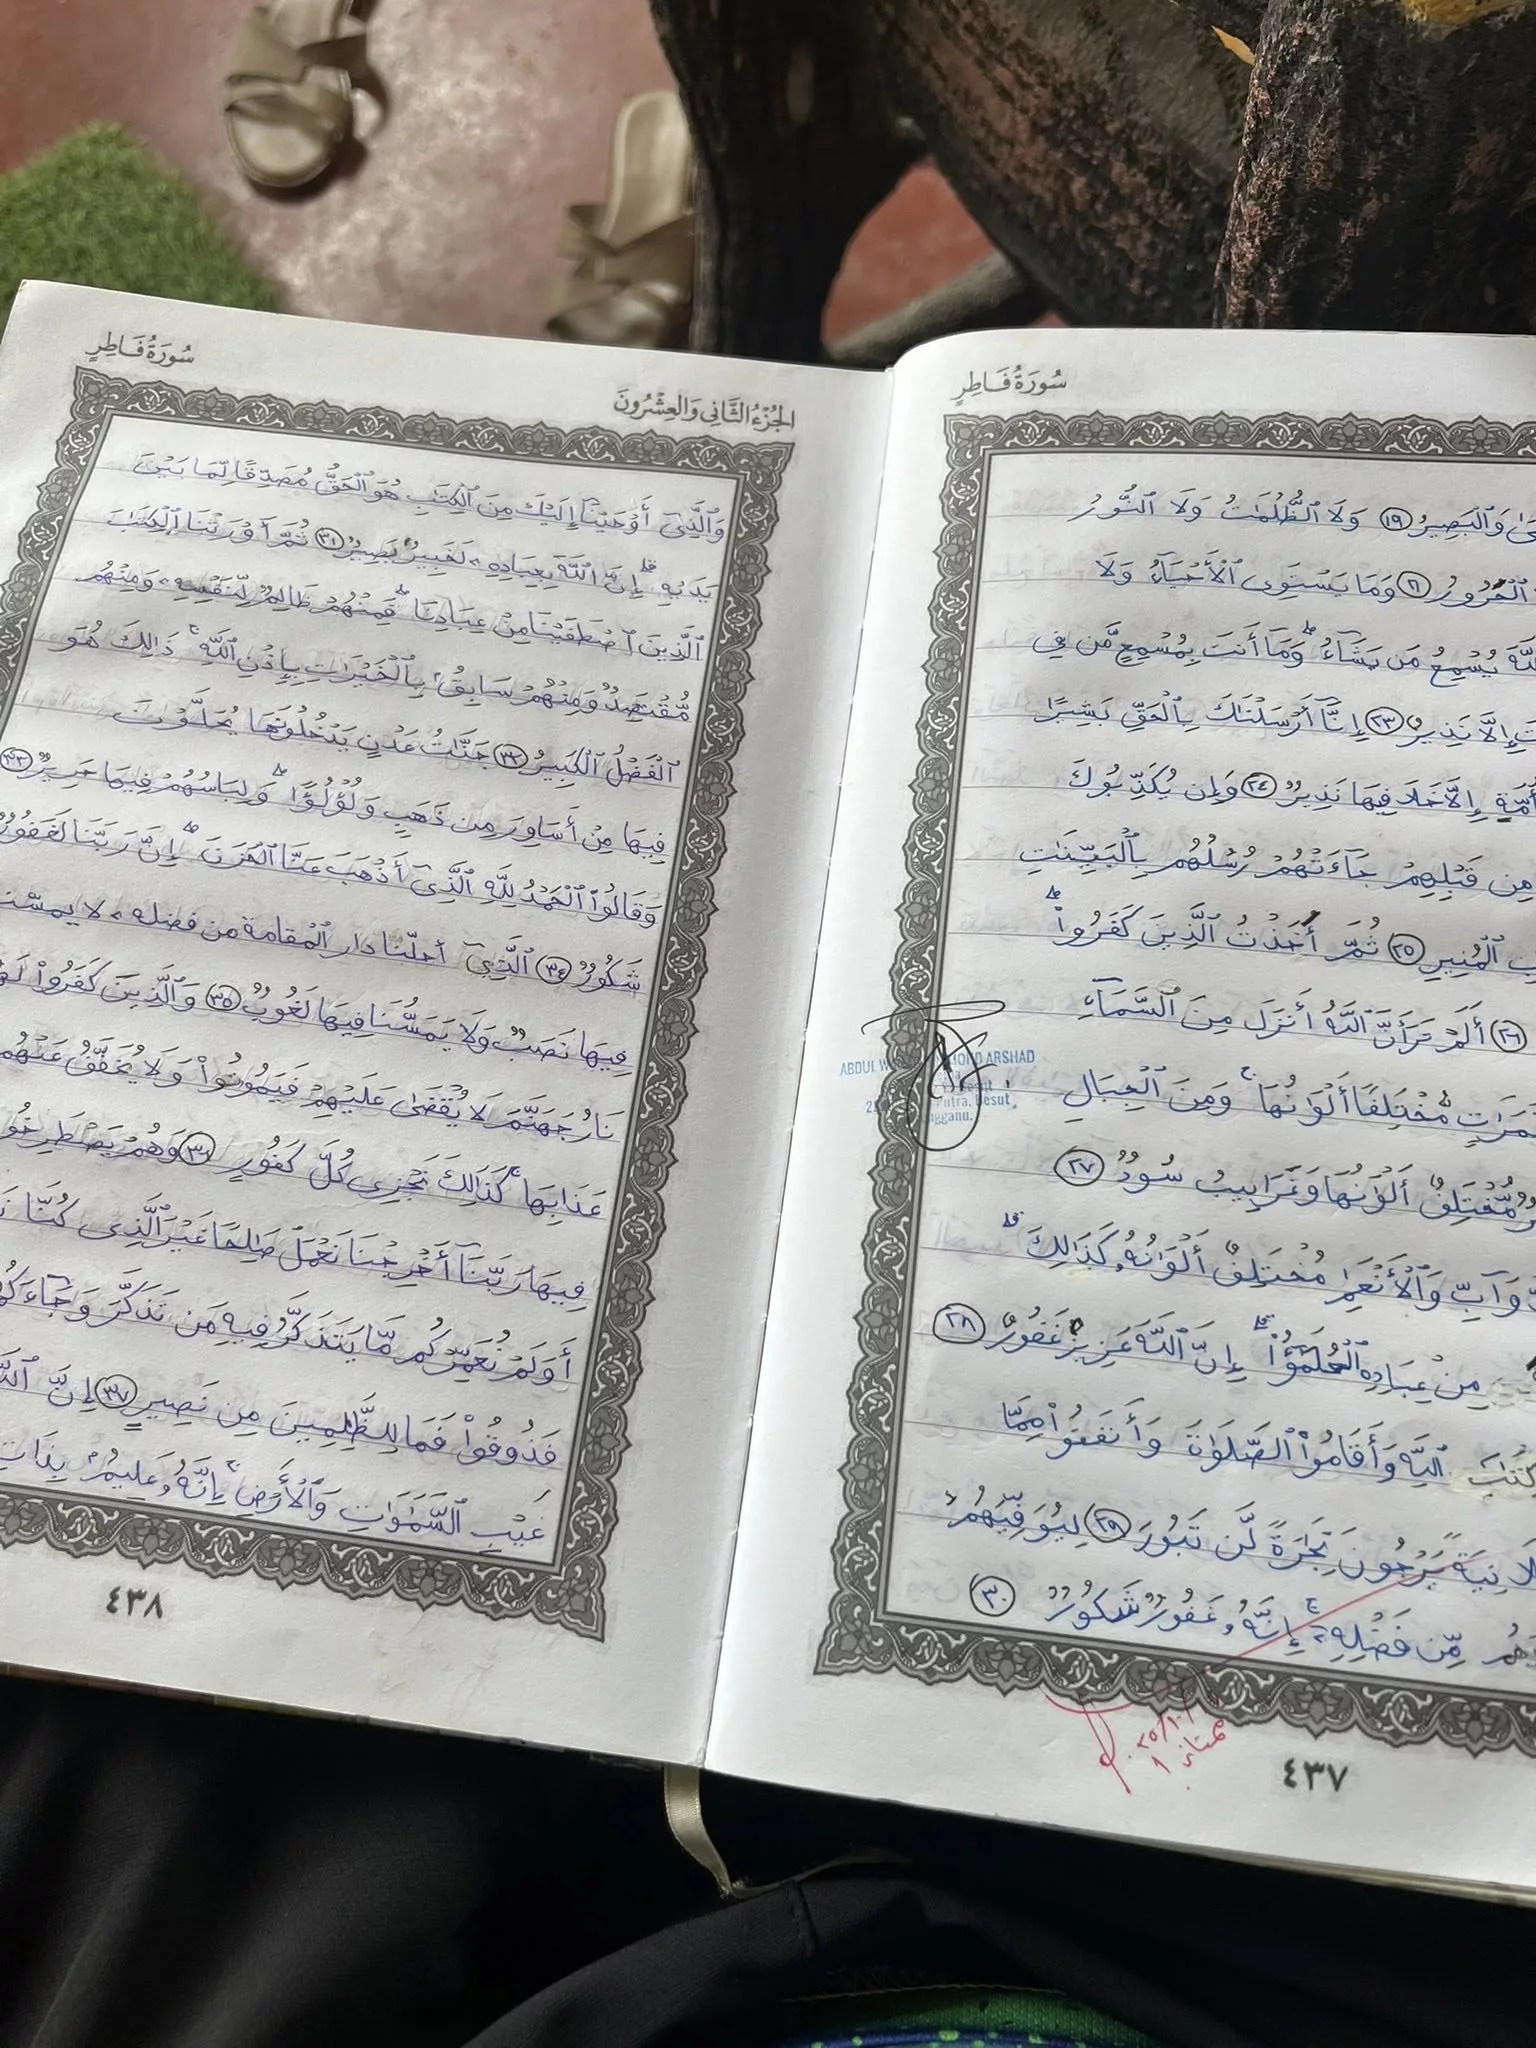 سُورَةُ فَاطِرٍ
ىٰ وَٱلْبَصِيرُ ١٩ وَلَا ٱلظُّلُمَٰتُ وَلَا ٱلنُّورُ
ٱلْحَرُورُ ٢١ وَمَا يَسْتَوِى ٱلْأَحْيَآءُ وَلَا
يُسْمِعُ مَن يَشَآءُ ۖ وَمَآ أَنتَ بِمُسْمِعٍ مَّن فِى
إِلَّا نَذِيرٌ ٢٣ إِنَّآ أَرْسَلْنَٰكَ بِٱلْحَقِّ بَشِيرًا
أُمَّةٍ إِلَّا خَلَا فِيهَا نَذِيرٌ ٢٤ وَإِن يُكَذِّبُوكَ
مِن قَبْلِهِمْ جَآءَتْهُمْ رُسُلُهُم بِٱلْبَيِّنَٰتِ
ٱلْمُنِيرِ ٢٥ ثُمَّ أَخَذْتُ ٱلَّذِينَ كَفَرُوا۟ ۖ
٢٦ أَلَمْ تَرَ أَنَّ ٱللَّهَ أَنزَلَ مِنَ ٱلسَّمَآءِ
مُّخْتَلِفًا أَلْوَٰنُهَا ۚ وَمِنَ ٱلْجِبَالِ
مُّخْتَلِفٌ أَلْوَٰنُهَا وَغَرَابِيبُ سُودٌ ٢٧
وَٱلْأَنْعَٰمِ مُخْتَلِفٌ أَلْوَٰنُهُۥ كَذَٰلِكَ ۗ
مِنْ عِبَادِهِ ٱلْعُلَمَٰٓؤُا۟ ۗ إِنَّ ٱللَّهَ عَزِيزٌ غَفُورٌ ٢٨
ٱللَّهِ وَأَقَامُوا۟ ٱلصَّلَوٰةَ وَأَنفَقُوا۟ مِمَّا
يَرْجُونَ تِجَٰرَةً لَّن تَبُورَ ٢٩ لِيُوَفِّيَهُمْ
مِّن فَضْلِهِۦٓ ۚ إِنَّهُۥ غَفُورٌ شَكُورٌ ٣٠
ABDUL
ARSHAD
Putra, Besut
ممتاز
٤٣٧
سُورَةُ فَاطِرٍ
الجُزْءُ الثَّانِي وَالعِشْرُونَ
وَٱلَّذِىٓ أَوْحَيْنَآ إِلَيْكَ مِنَ ٱلْكِتَٰبِ هُوَ ٱلْحَقُّ مُصَدِّقًا لِّمَا بَيْنَ
يَدَيْهِ ۗ إِنَّ ٱللَّهَ بِعِبَادِهِۦ لَخَبِيرٌۢ بَصِيرٌ ٣١ ثُمَّ أَوْرَثْنَا ٱلْكِتَٰبَ
ٱلَّذِينَ ٱصْطَفَيْنَا مِنْ عِبَادِنَا ۖ فَمِنْهُمْ ظَالِمٌ لِّنَفْسِهِۦ وَمِنْهُم
مُّقْتَصِدٌ وَمِنْهُمْ سَابِقٌۢ بِٱلْخَيْرَٰتِ بِإِذْنِ ٱللَّهِ ۚ ذَٰلِكَ هُوَ
ٱلْفَضْلُ ٱلْكَبِيرُ ٣٢ جَنَّٰتُ عَدْنٍ يَدْخُلُونَهَا يُحَلَّوْنَ
فِيهَا مِنْ أَسَاوِرَ مِن ذَهَبٍ وَلُؤْلُؤًا ۖ وَلِبَاسُهُمْ فِيهَا حَرِيرٌ ٣٣
وَقَالُوا۟ ٱلْحَمْدُ لِلَّهِ ٱلَّذِىٓ أَذْهَبَ عَنَّا ٱلْحَزَنَ ۖ إِنَّ رَبَّنَا لَغَفُورٌ
شَكُورٌ ٣٤ ٱلَّذِىٓ أحلنا دار المقامة من فضله لا يمسنا
فِيهَا نَصَبٌ وَلَا يَمَسُّنَا فِيهَا لُغُوبٌ ٣٥ وَٱلَّذِينَ كَفَرُوا۟
نَارُ جَهَنَّمَ لَا يُقْضَىٰ عَلَيْهِمْ فَيَمُوتُوا۟ وَلَا يُخَفَّفُ عَنْهُم
عَذَابِهَا ۚ كَذَٰلِكَ نَجْزِى كُلَّ كَفُورٍ ٣٦ وَهُمْ
فِيهَا رَبَّنَآ أَخْرِجْنَا نَعْمَلْ صَٰلِحًا غَيْرَ ٱلَّذِى كُنَّا
أَوَلَمْ نُعَمِّرْكُم مَّا يَتَذَكَّرُ فِيهِ مَن تَذَكَّرَ
فَذُوقُوا۟ فَمَا لِلظَّٰلِمِينَ مِن نَّصِيرٍ ٣٧ إِنَّ
غَيْبِ ٱلسَّمَٰوَٰتِ وَٱلْأَرْضِ ۚ إِنَّهُۥ عَلِيمٌۢ بِذَاتِ
٤٣٨